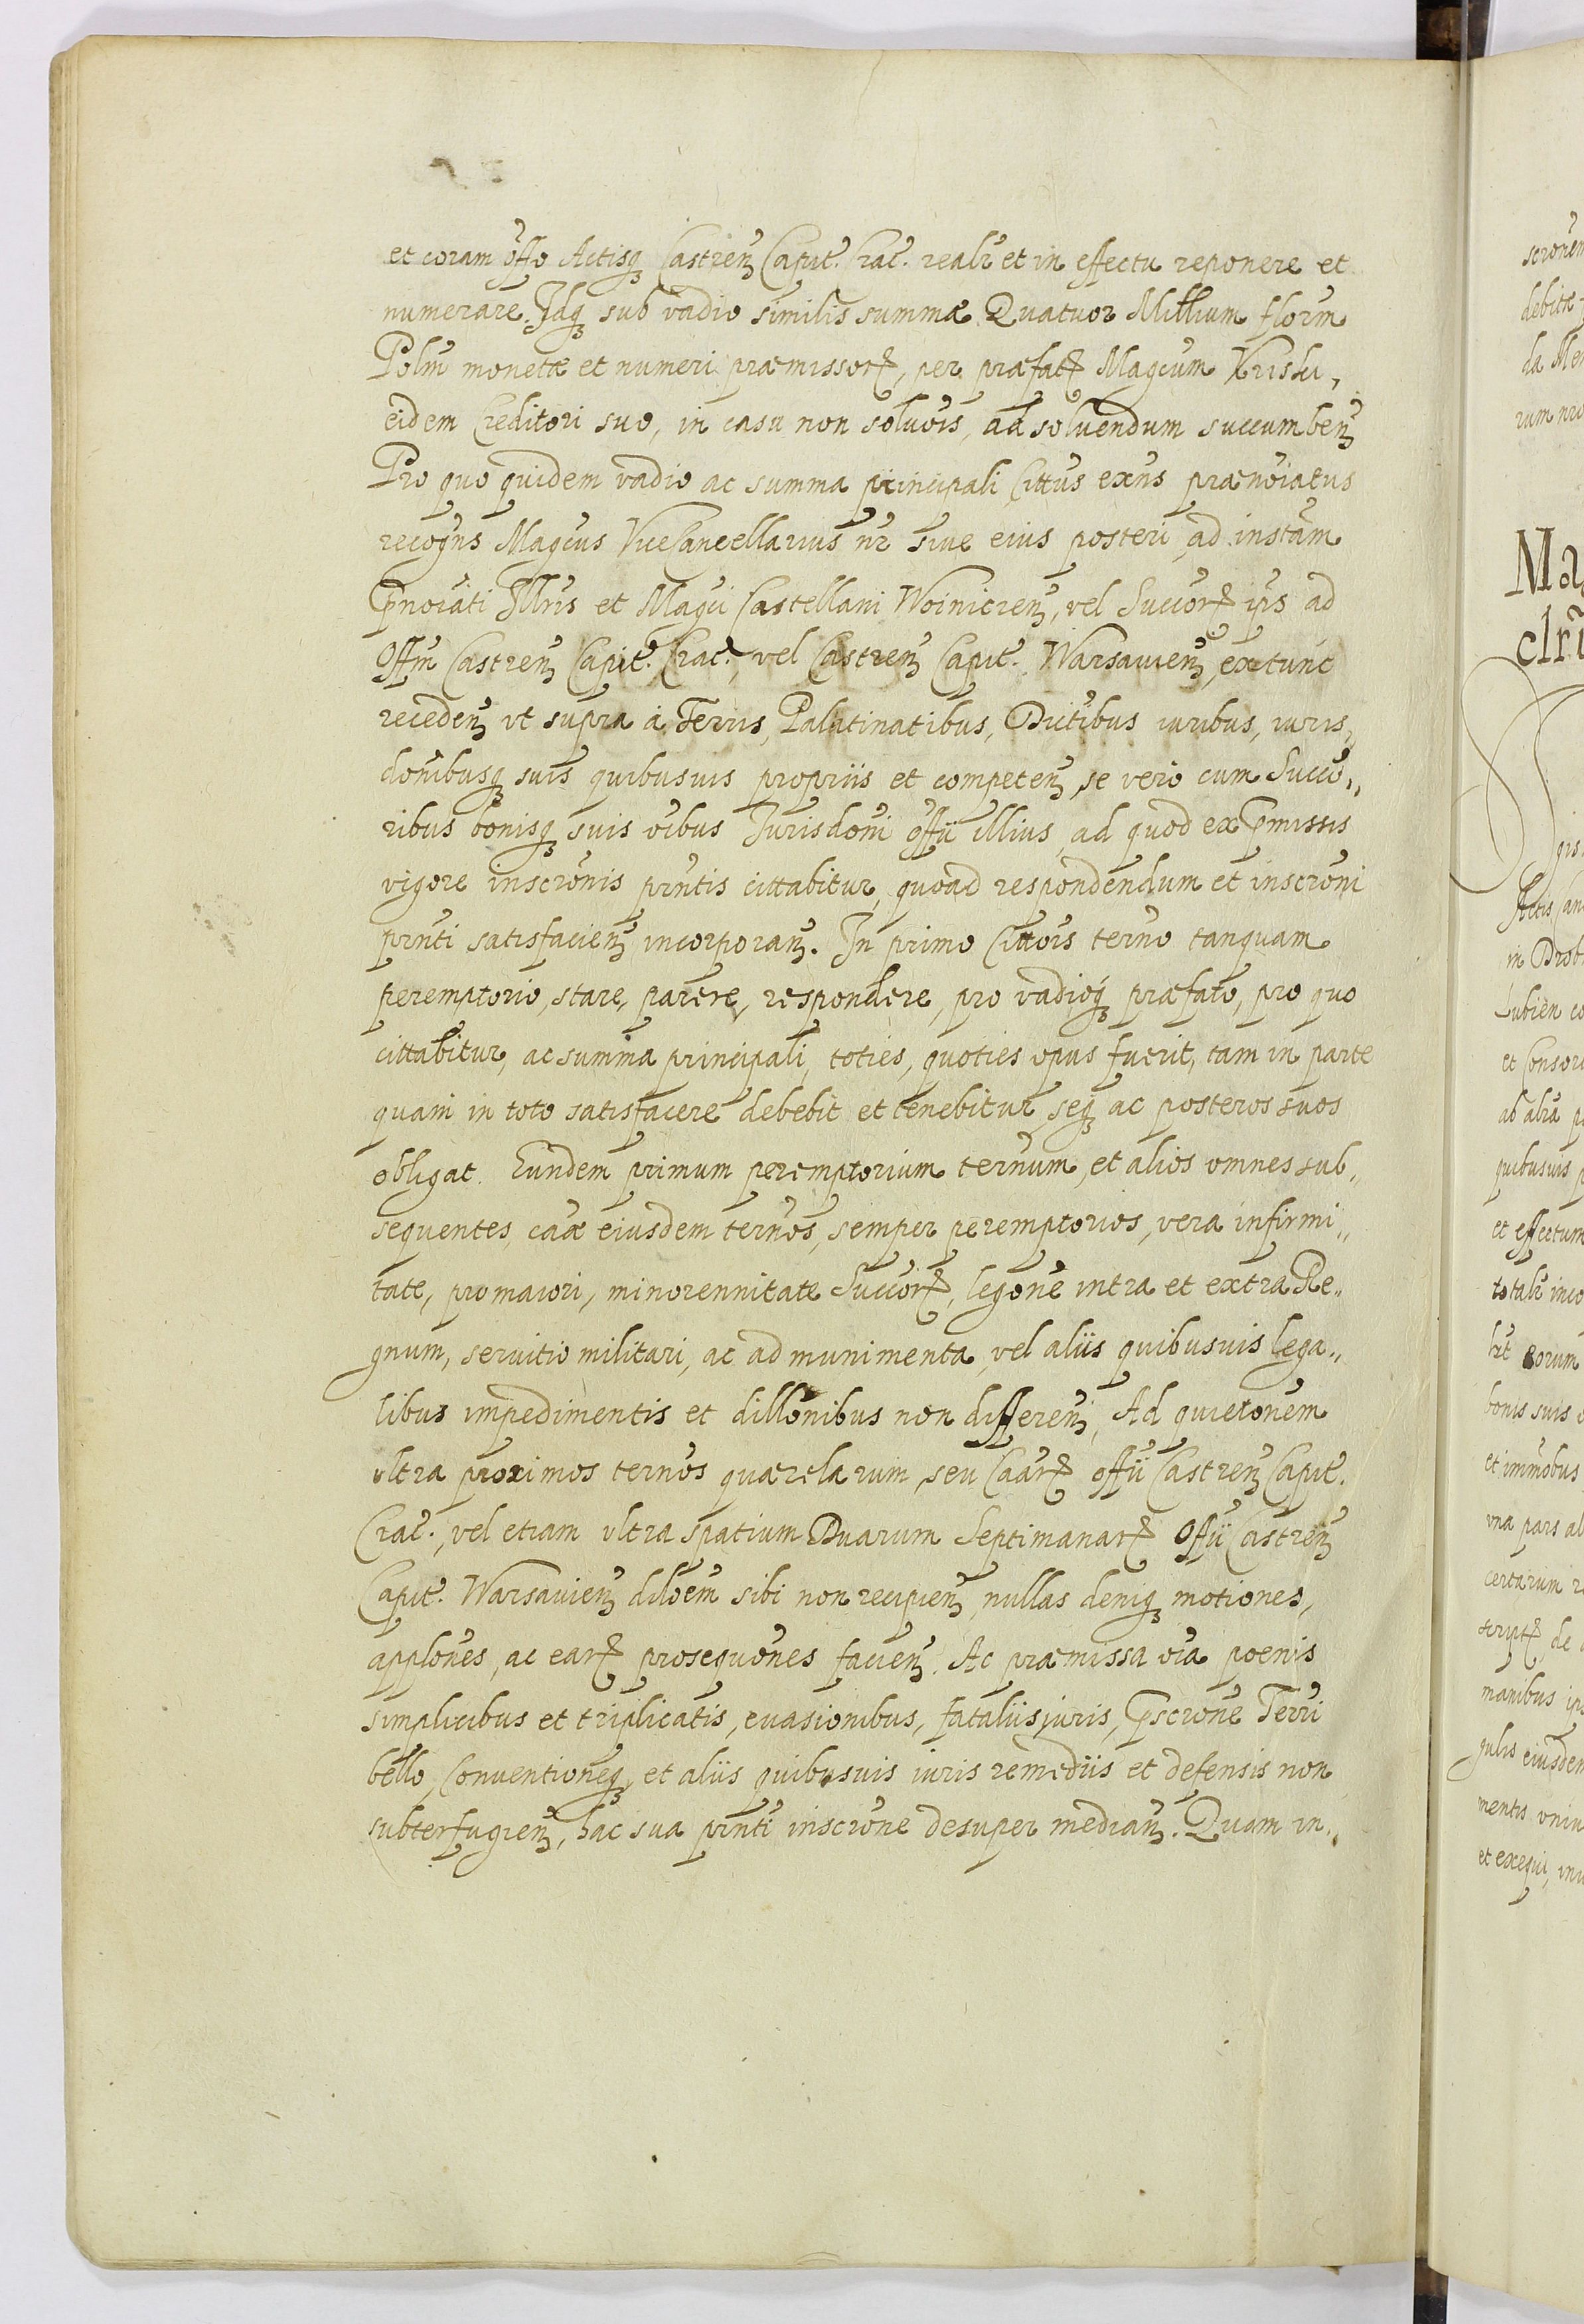 et coram offo Actisq Castren Capit. Crac. realr et in effectu reponere et
numerare. Idq sub vadio similis summæ Quatuor Millium florm
Polm monetæ et numeri præmissor, per præfat Magcum Krislii,
eidem Creditori suo, in casu non solvois, ad solvendum succumben
Pro quo quidem vadio ac summa principali Cittus exns prænoiatus
recogns Magcus ViceCancellarius nr sive eius posteri ad instam
Pnoiati Illris et Magci Castellani Woinicien, vel Succor ips ad
Offm Castren Capit. Crac., vel Castren Capit. Warsavien, extunc
receden vt supra a Terris, Palatinatibus, Dictibus iuribus, iuris,
donibusq suis quibusuis propriis et competen, se vero cum Succo„
ribus bonisq suis oibus Iurisdoni offii illius, ad quod ex Pmissis
vigore inscronis pntis cittabitur, quoad respondendum et inscroni
pnti satisfacien incorporan. In primo Cittois terno tanquam
peremptorio, stare, parere, respondere, pro vadioq præfato, pro quo
cittabitur, ac summa principali, toties, quoties opus fuerit, tam in parte
quam in toto satisfacere debebit et tenebitur, seq ac posteros suos
obligat. Eundem primum peremptorium ternum, et alios omnes sub„
sequentes, caæ eiusdem ternos, semper peremptorios, vera infirmi„
tate, pro maiori, minorennitate Succor, legone intra et extra Re„
gnum, servitio militari, ac ad munimenta, vel aliis quibusuis lega„
libus impedimentis et dillonibus non differen, Ad quietonem
vltra proximos ternos quærelarum, seu Caar offii Castren Capit.
Crac., vel etiam vltra spatium Duarum Septimanar Offii Castren
Capit. Warsavien diloem sibi non recipien, nullas deniq motiones,
applones, ac ear prosequones facien. Ac præmissa oia poenis
simplicibus et triplicatis, evasionibus, fataliis iuris, Pscrone Terri
bello, Conventioneq, et aliis quibusuis iuris remediis et defensis non
subterfugien, hac sua pnti inscrone desuper median. Quam in„